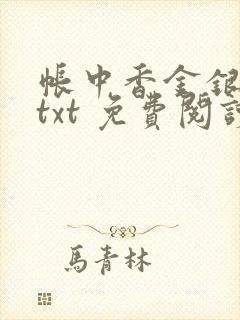 帳中香金銀
txt 免費閱讀
馬青林